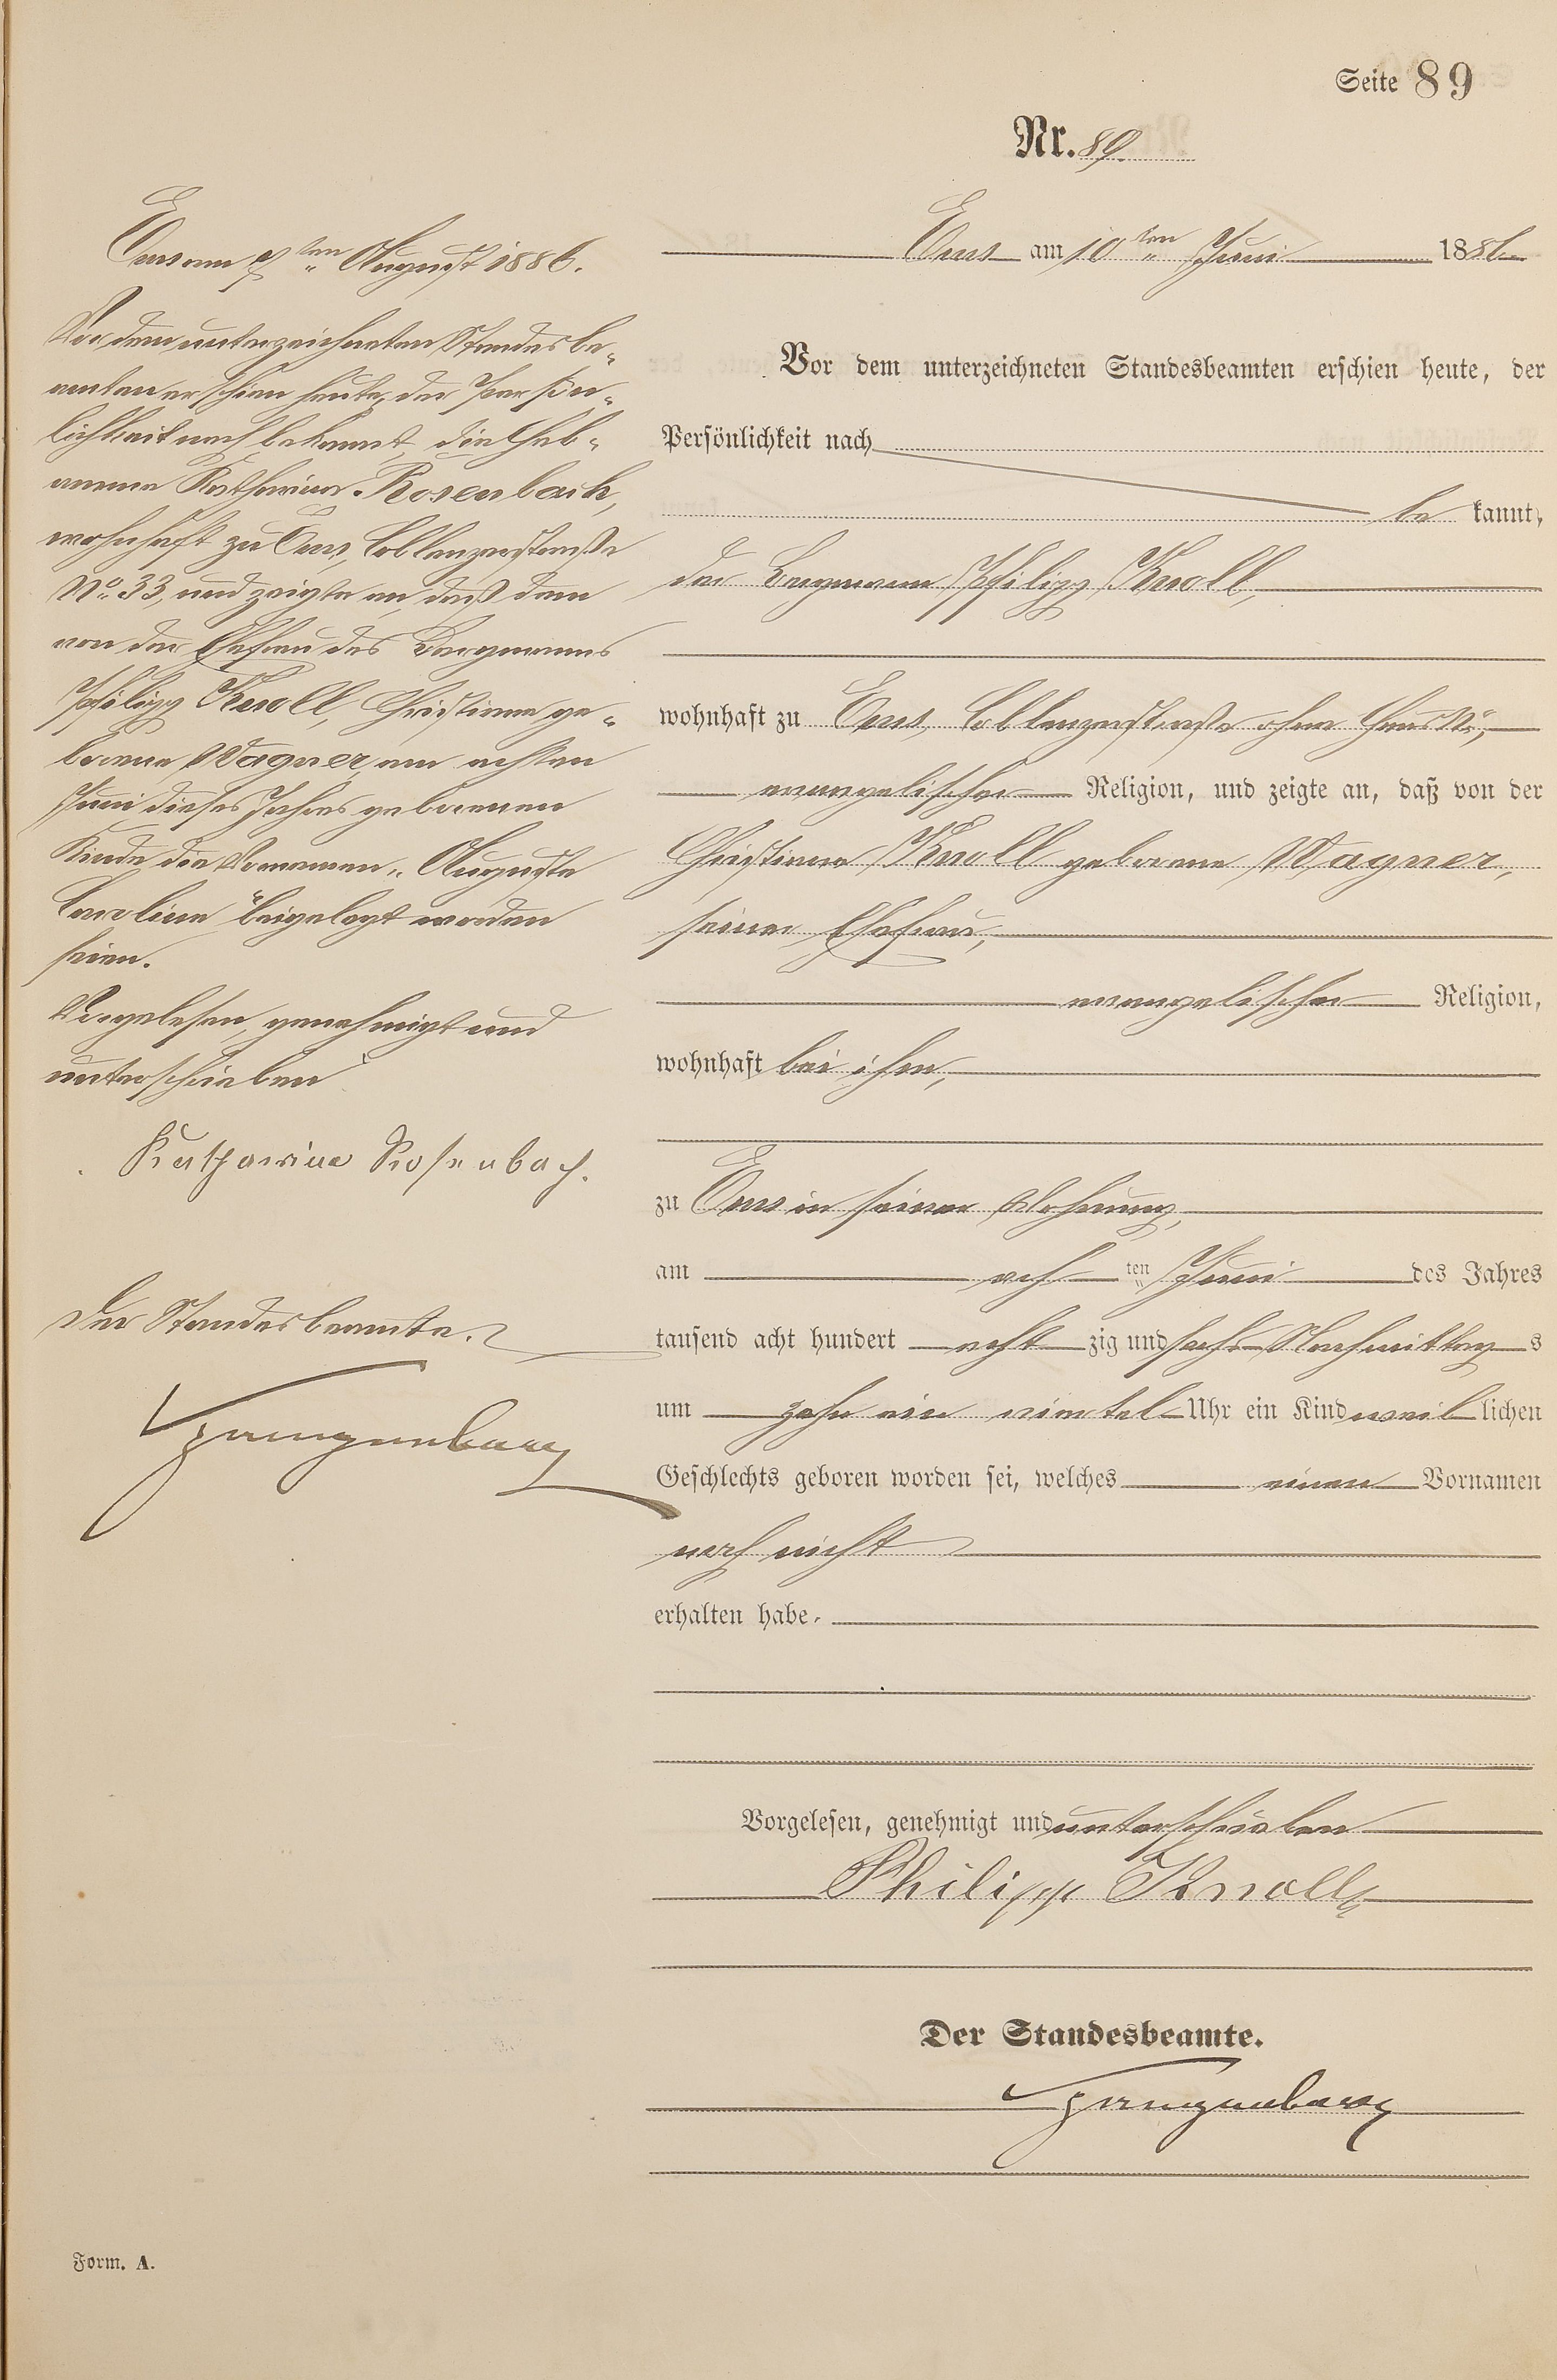 Seite 89
Nr. 89.
Ems am 10ten Juni 1886.
Vor dem unterzeichneten Standesbeamten erschien heute, der
Persönlichkeit nach
be kannt,
der Bergmann Philipp Knoll,
wohnhaft zu Ems, Coblenzerstraße ohne Haus No.,
evangelischer Religion, und zeigte an, daß von der
Christiane Knoll geborene Wagner,
seiner Ehefrau,
evangelischer Religion,
wohnhaft bei ihm,
zu Ems in seiner Wohnung,
am ach ten Juni des Jahres
tausend acht hundert acht zig und sechs Nachmittag s
um zehn ein viertel Uhr ein Kind weib lichen
Geschlechts geboren worden sei, welches einen Vornamen
noch nicht
erhalten habe.
Vorgelesen, genehmigt und unterschrieben
Philipp Knoll
Der Standesbeamte.
Ems am ten August 1886.
Vor dem unterzeichneten Standesbe-
amten erschien heute, der Persön-
lichkeit nach bekannt, die Heb-
amme Katharina Rosenbach,
wohnhaft zu Ems, Coblenzerstraße
No. 33, und zeigte an, daß dem
von der Ehefrau des Bergmanns
Philipp Knoll, Christiane ge-
borene Wagner, am achten
Juni dieses Jahres geborenen
Kinde die Vornamen „Auguste
Caroline" beigelegt worden
seien.
Vorgelesen, genehmigt und
unterschrieben
Katharina Rosenbach.
Der Standesbeamte.
Form. A.